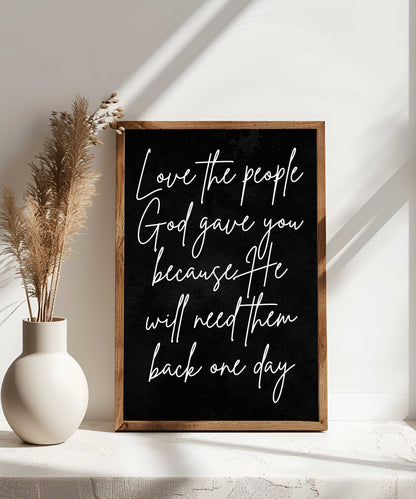 Love the people
God gave you
because He
will need them
back one day